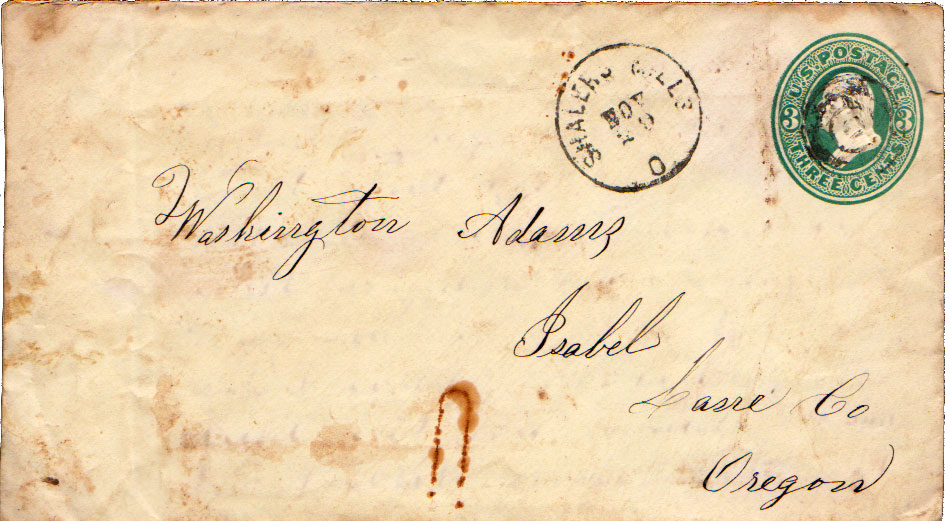 U.S. POSTAGE
3 3
THREE CENTS
SHALERS MILLS
NOV
20
O
Washington Adams
Isabel
Lane Co
Oregon